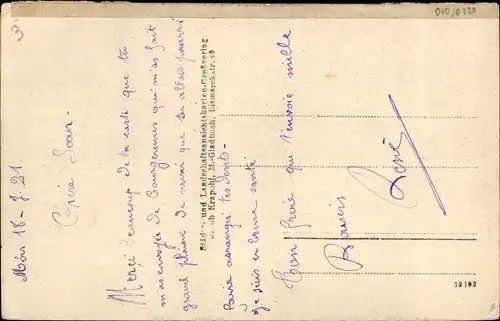 Mörs 18-7-21.
Chère Sœur
Merci beaucoup de la carte que tu
m'as envoyée de Bourgeres qui m'as fait
grand plaisir de savoir que tu allais pouvoir
faire arranger tes dents -
Je suis en bonne santé
Ton frère qui t'envoie mille
Baisers
René
Städte- und Landschaftsansichtskarten-Großverlag
Jakob Krapohl, M.-Gladbach, Bismarckstr. 69
12 102
010/0320
3